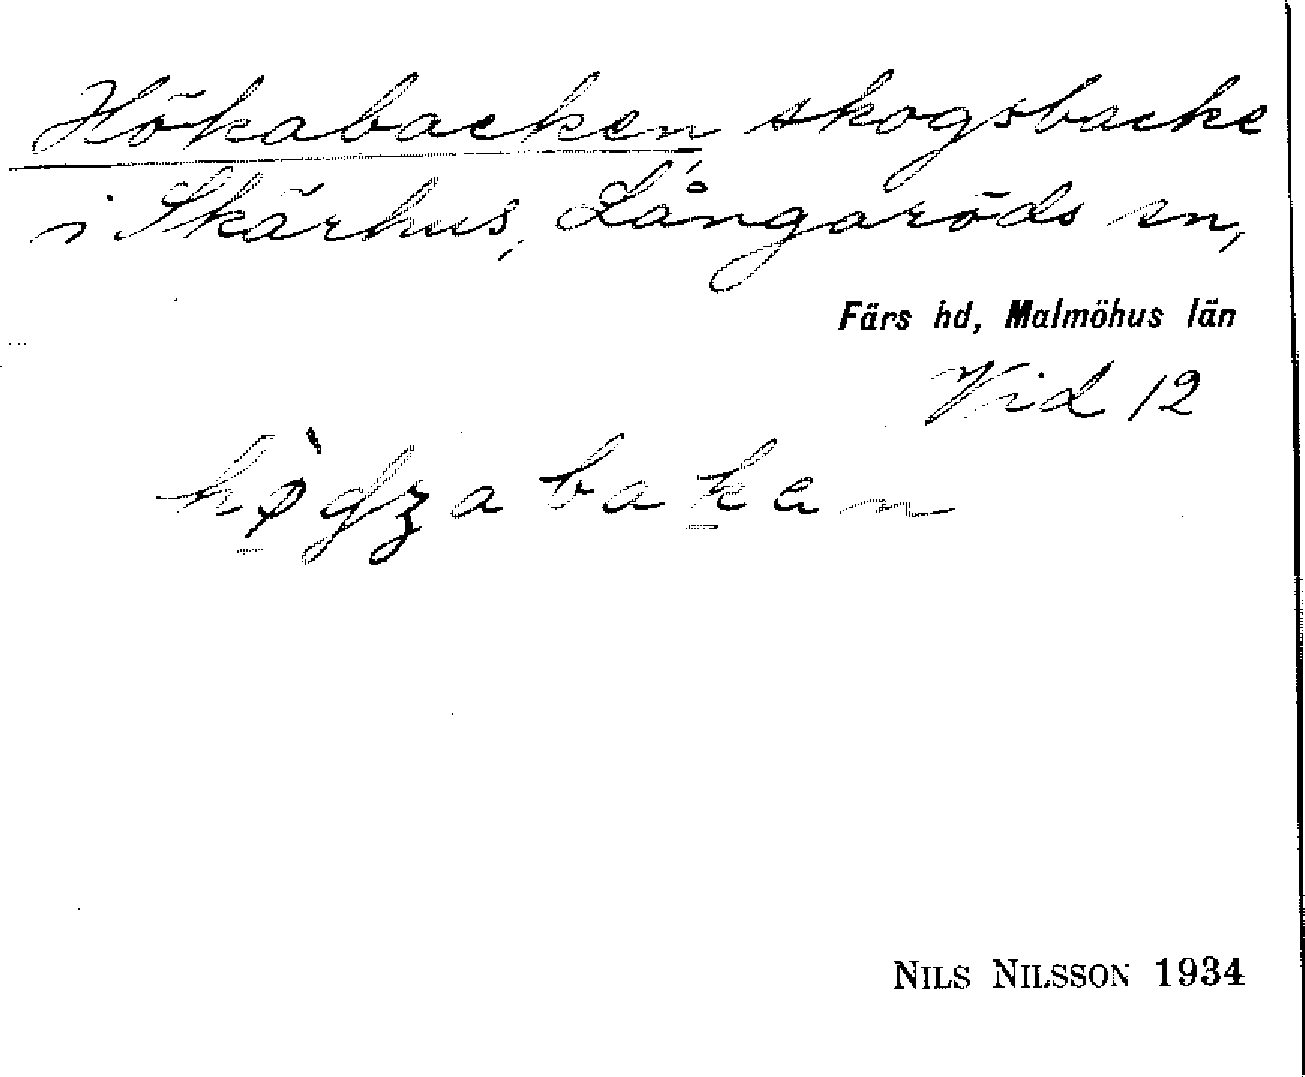 Hökabacken skogsbacke
i Skärhus, Långaröds sn,
Färs hd, Malmöhus län
Vid 12
NILS NILSSON 1934